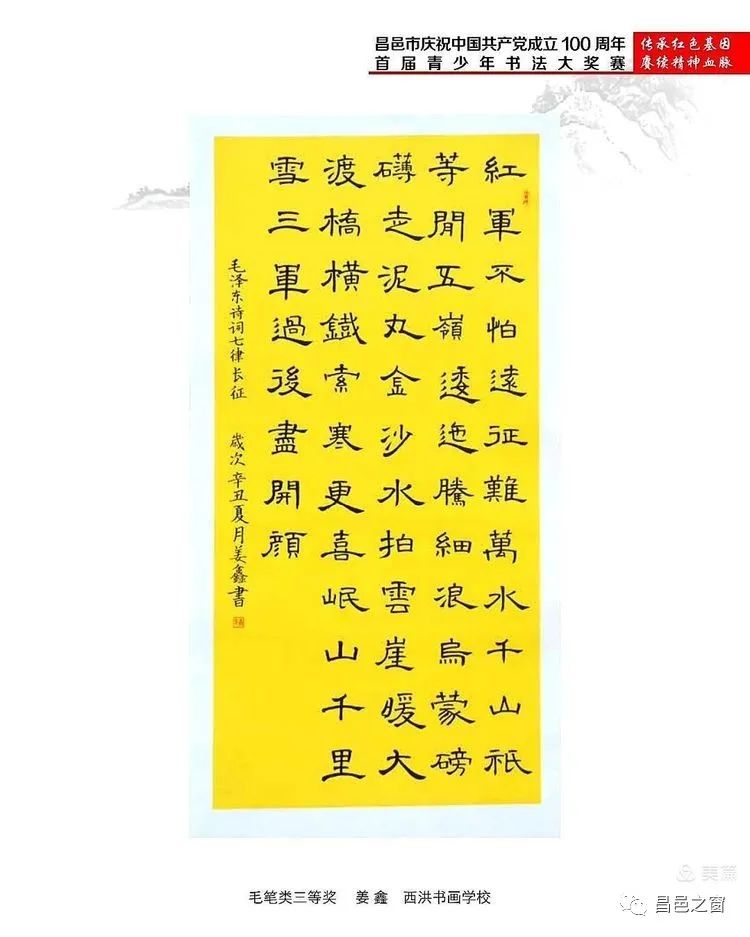 昌邑市庆祝中国共产党成立100周年
首届青少年书法大奖赛
传承红色基因
赓续精神血脉
紅軍不怕遠征難萬水千山祇
等閒五嶺逶迤騰細浪烏蒙磅
礴走泥丸金沙水拍雲崖暖大
渡橋橫鐵索寒更喜岷山千里
雪三軍過後盡開顏
毛泽东诗词七律长征 歲次辛丑夏月姜鑫書
毛笔类三等奖 姜鑫 西洪书画学校
美篇
昌邑之窗